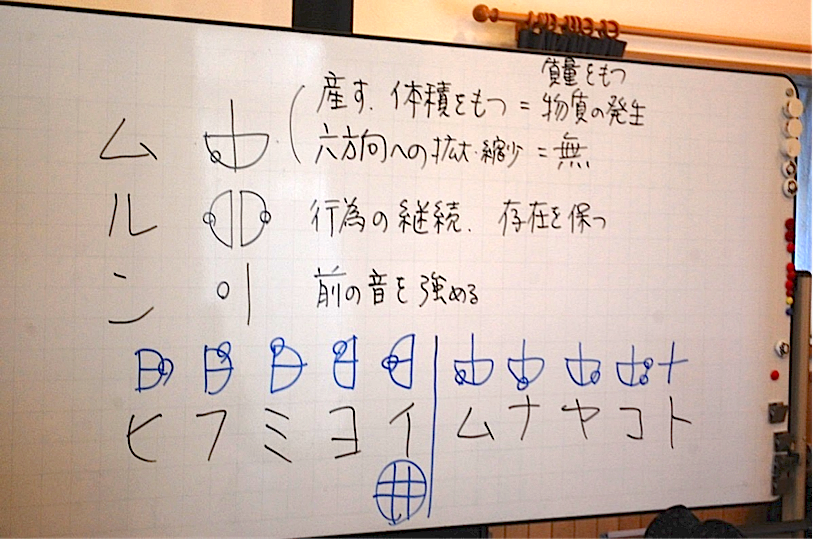 質量をもつ
ム (産す、体積をもつ = 物質の発生
六方向への拡大・縮少 = 無
ル 行為の継続、存在を保つ
ン 前の音を強める
ヒ フ ミ ヨ イ ム ナ ヤ コ ト